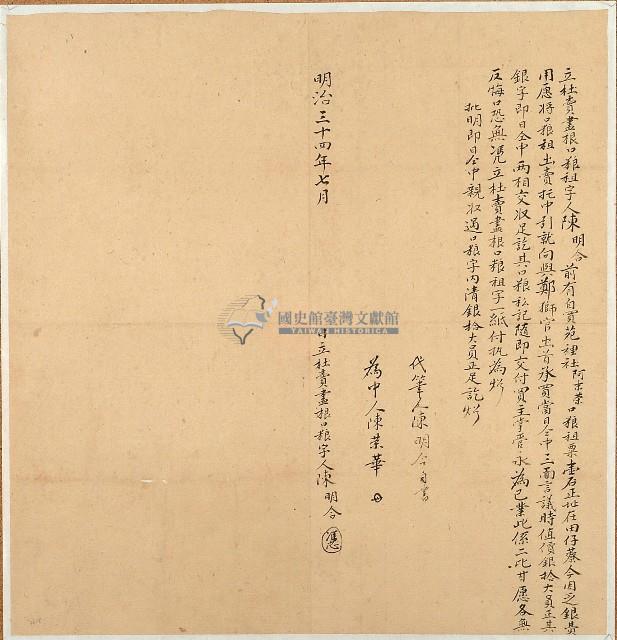 立杜賣盡根口粮租字人陳明合前有自買苑裡社阿末荣口粮租粟壹石正址在田仔藔今因乏銀費
用愿將口粮租出賣托中引就向與鄭獅官出首承買當日仝中三面言議時值價銀拾大員正其
銀字即日仝中兩相交收足訖其口粮租訖隨即交付買主掌管永為己業此係二比甘愿各無
反悔口恐無凭立杜賣盡根口粮租字一紙付执為炤
批明即日仝中親收過口粮字內清銀拾大員正足訖炤
代筆人陳明合自書
為中人陳荣華
明治三十四年七月
日立杜賣盡根口粮字人陳明合
憑
國史館臺灣文獻館
TAIWAN HISTORICA